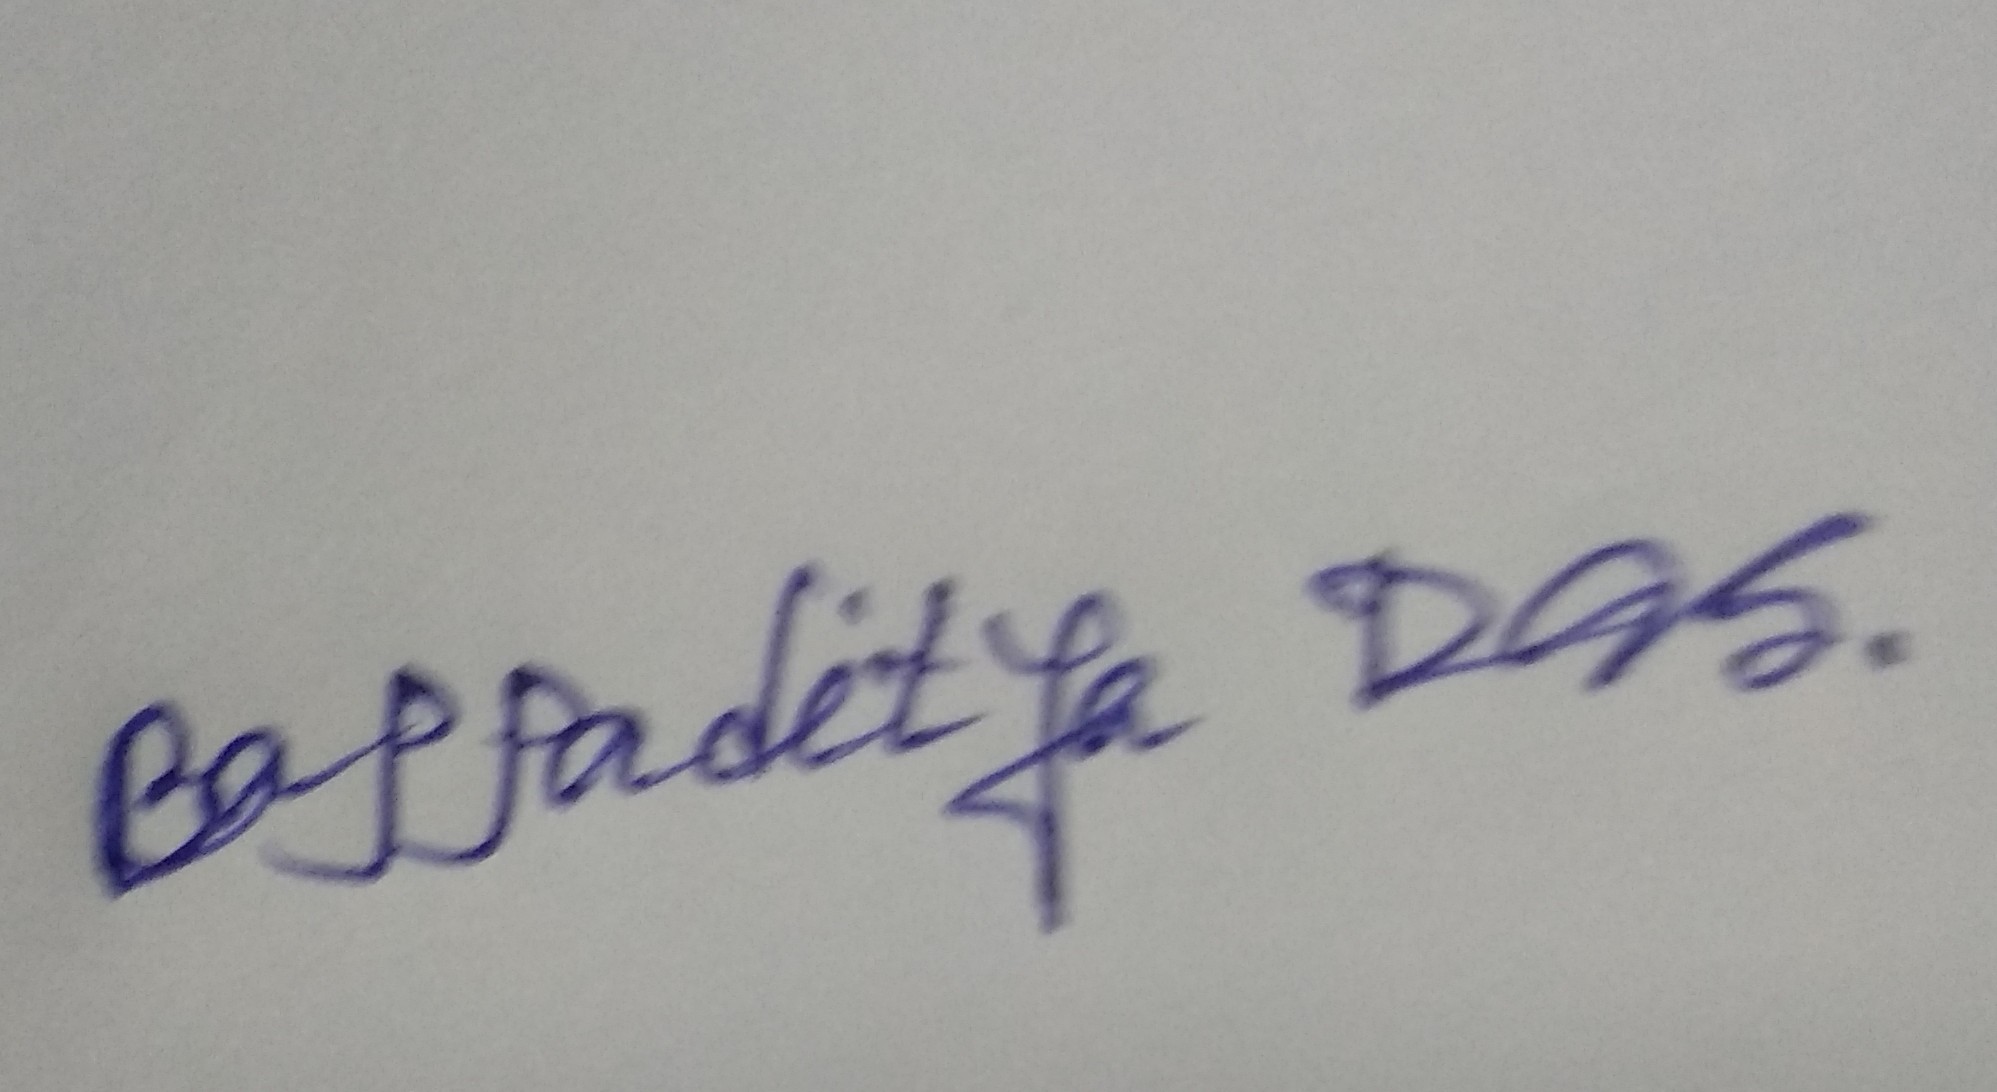 Bappaditya Das.